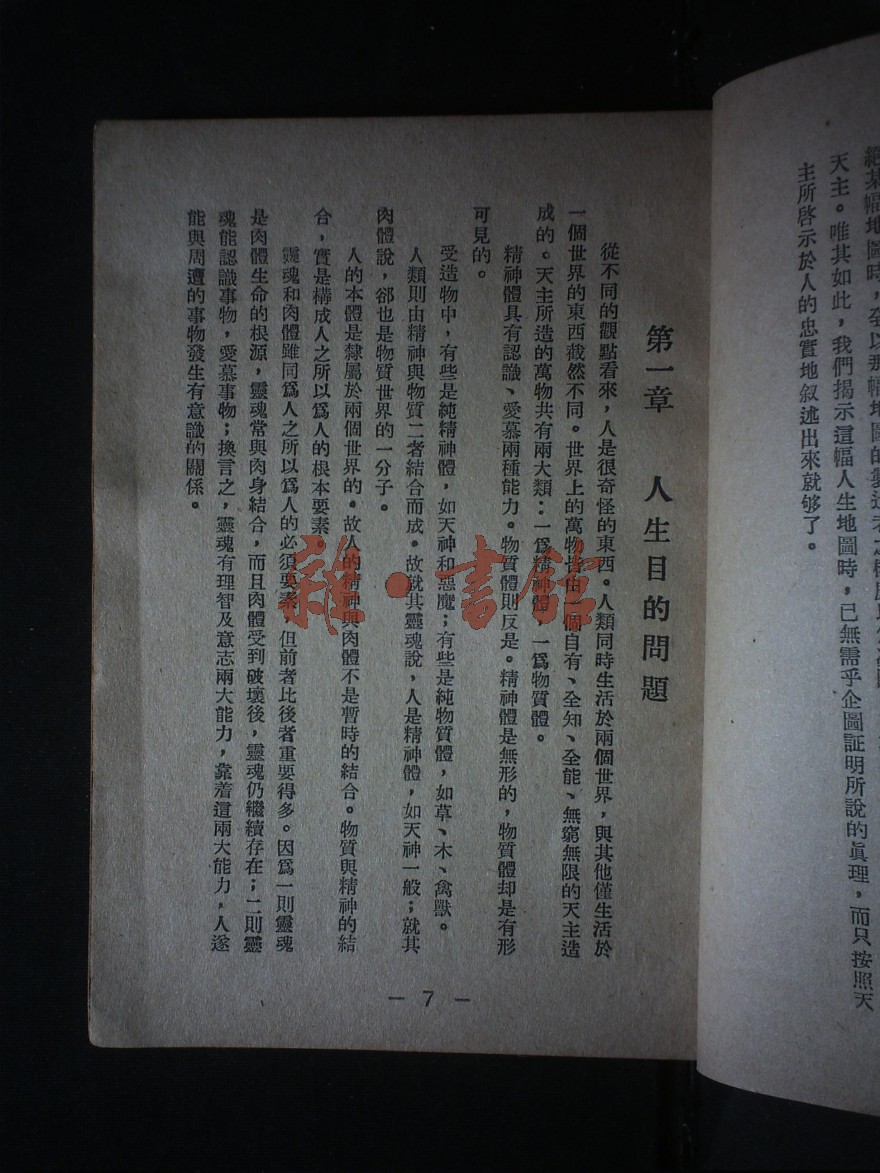 天主。唯其如此，我們揭示這幅人生地圖時，已無需乎企圖証明所說的眞理，而只按照天
主所啓示於人的忠實地叙述出來就够了。
第一章　人生目的問題
從不同的觀點看來，人是很奇怪的東西。人類同時生活於兩個世界，與其他僅生活於
一個世界的東西截然不同。世界上的萬物皆由一個自有、全知、全能、無窮無限的天主造
成的。天主所造的萬物共有兩大類：一爲精神體，一爲物質體。
精神體具有認識、愛慕兩種能力。物質體則反是。精神體是無形的，物質體却是有形
可見的。
受造物中，有些是純精神體，如天神和惡魔；有些是純物質體，如草、木、禽獸。
人類則由精神與物質二者結合而成。故就其靈魂說，人是精神體，如天神一般；就其
肉體說，郤也是物質世界的一分子。
人的本體是隸屬於兩個世界的。故人的精神與肉體不是暫時的結合。物質與精神的結
合，實是構成人之所以爲人的根本要素。
靈魂和肉體雖同爲人之所以爲人的必須要素，但前者比後者重要得多。因爲一則靈魂
是肉體生命的根源，靈魂常與肉身結合，而且肉體受到破壞後，靈魂仍繼續存在；二則靈
魂能認識事物，愛慕事物；換言之，靈魂有理智及意志兩大能力，靠着這兩大能力，人遂
能與周遭的事物發生有意識的關係。
— 7 —
雜·書館